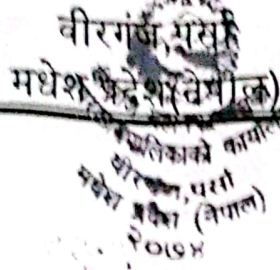 वीरगंज, पर्सा
मधेश प्रदेश (नेपाल)
पालिकाको कार्यालय
वीरगंज, पर्सा
मधेश प्रदेश (नेपाल)
२०७४